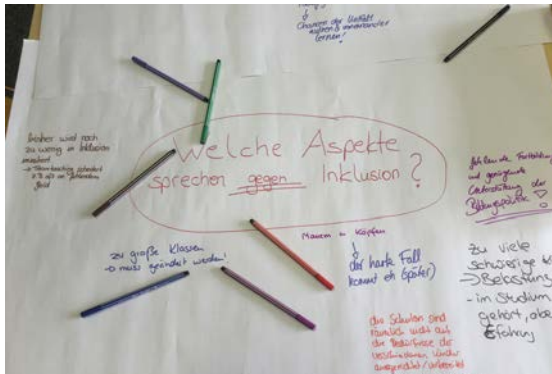 Chancen der Vielfalt
nutzen & voneinander
lernen!
bisher wird noch
zu wenig in Inklusion
investiert
Geld
Welche Aspekte
sprechen gegen Inklusion?
fehlende Fortbildung
und geringe
Unterstützung der
Bildungspolitik
Mauern in Köpfen
zu große Klassen
→ muss geändert werden!
der harte Fall
kommt eh (später)
zu viele
schwierige
→ Belastung
- im Studium
gehört, aber
Erfahrung
die Schulen sind
räumlich nicht auf
die Bedürfnisse der
verschiedenen Kinder
ausgerichtet/vorbereitet